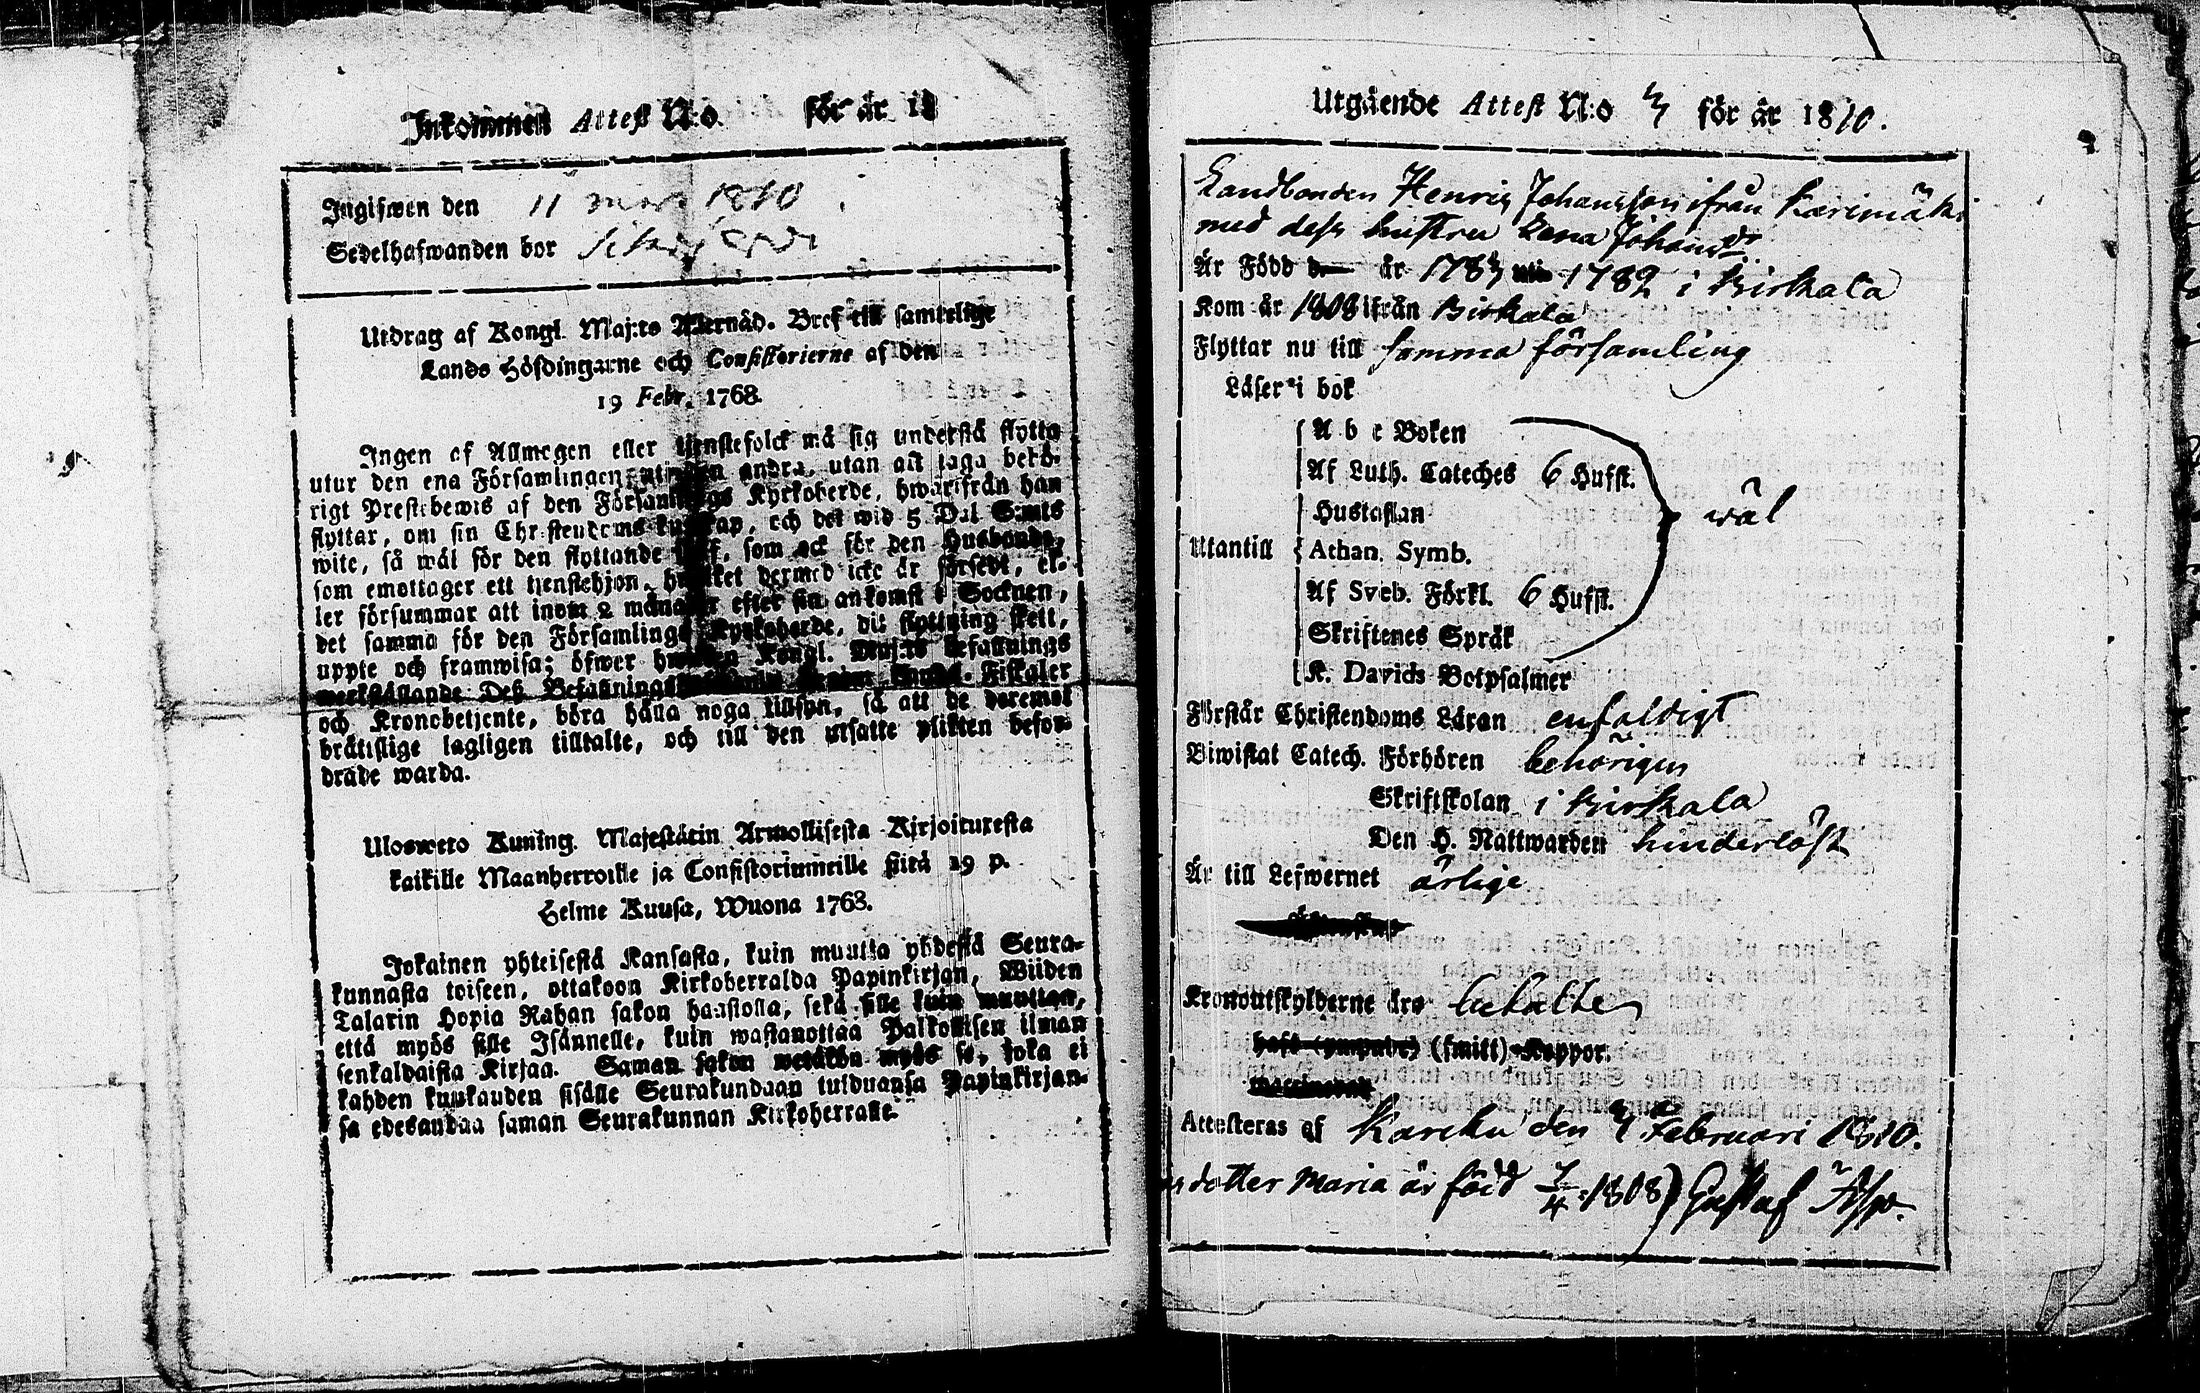 Inkommen Attest N:o för år 18
Ingifwen den 11 mars 1810
Sedelhafwanden bor
Utdrag af Kongl. Maj:ts Allernåd. Bref till samtelige
Lands Höfdingarne och Consistorierne af den
19 Febr. 1768.
Ingen af Allmogen eller tjenstefolck må sig understå flytta
utur den ena Församlingen, uti den andra, utan att taga behö-
rigt Prestebewis af den Församlings Kyrkoherde, hwarifrån han
flyttar, om sin Christendoms kunskap, och det wid 5 Dal S:mts
wite, så wäl för den flyttande sjelf, som ock för den Husbonde,
som emottager ett tjenstehjon, hwilket dermed icke är försedt, el-
ler försummar att inom 2 månader efter sin ankomst i Socknen,
det samma för den Församlings Kyrkoherde, dit flyttning skett,
uppte och framwisa; öfwer hwilken Kongl. Maj:ts Befallnings
werkställande Deß Befallnings Fiskaler
och Kronobetjente, böra hålla noga tillsyn, så att de deremot
bråtislige lagligen tilltalte, och till den utsatte plikten befor-
drade warda.
Uloswelo Kuning. Majestätin Armollisesta Kirjoituxesta
kaikille Maanherroille ja Consistoriumeille siitä 19 p.
Helme Kuusa, Wuona 1768.
Jokainen yhteisestä Kansasta, kuin muutta yhdestä Seura-
kunnasta toiseen, ottakoon Kirkoherralda Papinkirjan, Wiiden
Talarin Hopia Rahan sakon haastolla, sekä sille kuin muuttan,
että myös sille Isännelle, kuin wastanottaa Palkollisen ilman
senkaldaista Kirjaa. Saman sakon wetäkön myös se, joka ei
kahden kuukauden sisälle Seurakundaan tulduansa Papinkirjan-
sa edesandaa saman Seurakunnan Kirkoherralle.
Utgående Attest N:o för år 1810.
Landbonden Henric Johansson ifrån Karimäki
med dess hustru Lena Johansdr
Är Född år 1782 i Birkala
Kom år 1808 ifrån Birkala
Flyttar nu till samma församling
Läser i bok
A b c Boken
Af Luth. Cateches 6 Hufst.
Hustaflan wäl
Utantill Athan. Symb.
Af Sveb. Förkl. 6 Hufst.
Skriftenes Språk
K. Davids Botpsalmer
Förstår Christendoms Läran enfaldigt
Biwistat Catech. Förhören behörigen
Skriftskolan i Birkala
Den H. Nattwarden hinderlöst
Är till Lefwernet ärlige
Kronoutskylderne äro betalte
haft (ympade) (smitt) Koppor.
Attesteras af Karcku den Februari 1810.
dotter Maria är född 7/4 1808) Gustaf Asp.